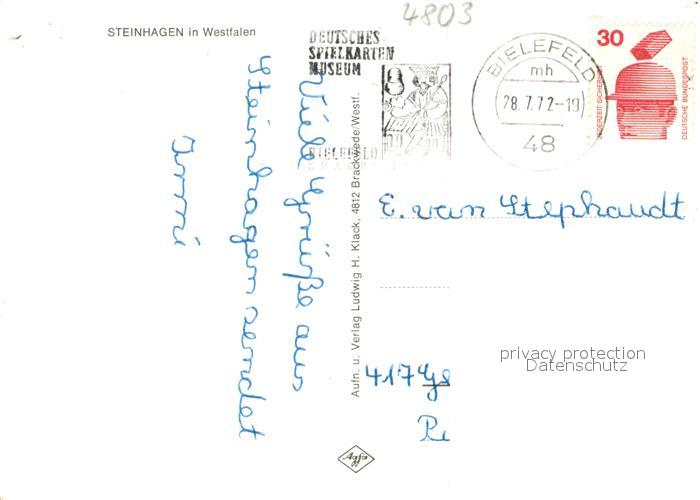 4803
STEINHAGEN in Westfalen
DEUTSCHES
SPIELKARTEN
MUSEUM
BIELEFELD
BIELEFELD
mh
28.7.72-19
48
30
JEDERZEIT SICHERHEIT
DEUTSCHE BUNDESPOST
Viele Grüße aus
Steinhagen sendet
Immi
Aufn. u. Verlag Ludwig H. Klack, 4812 Brackwede/Westf.
E. van Stephaudt
417 Ge
privacy protection
Datenschutz
Agfa